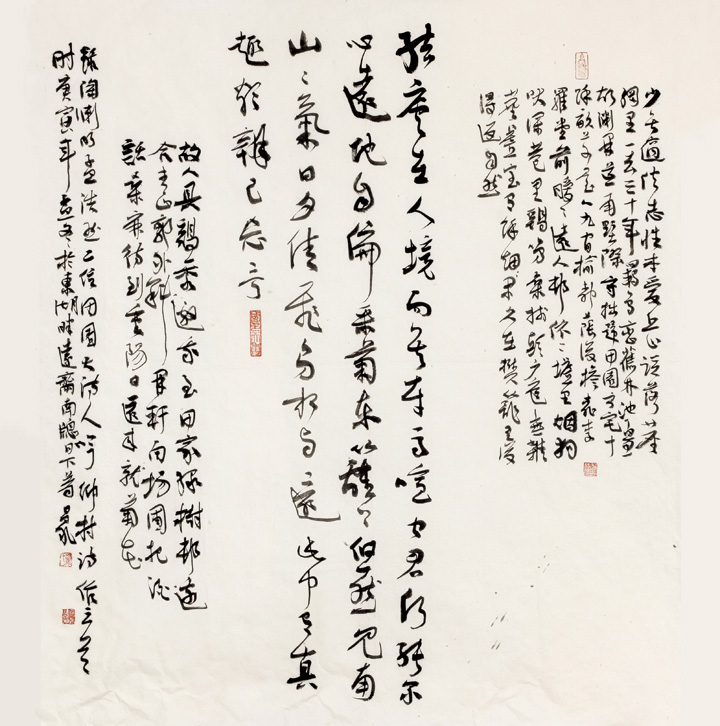 少無適俗志性本愛丘山誤落塵
網里一去三十年羈鳥戀舊林池魚
故淵開荒南野際守拙歸園田方宅十
餘畝草屋八九間榆柳蔭後檐桃李
羅堂前曖〻遠人村依〻墟里烟狗
吠深巷里鷄鳴桑樹顛户庭無雜
塵虛室有餘閒久在樊籠里復
得返自然
結廬在人境而無車馬喧問君何能尔
心遠地自偏采菊東籬下悠然見南
山〻氣日夕佳飛鳥相與還此中有真
趣欲辨已忘言
故人具鷄黍邀我至田家綠樹村邊
合青山郭外斜開軒向場圃把酒
話桑麻待到重陽日還來就菊花
錄陶淵明孟浩然二位田園大詩人吟鄉村詩作三首
時庚寅年孟冬於東湖時遠齋南牕日下